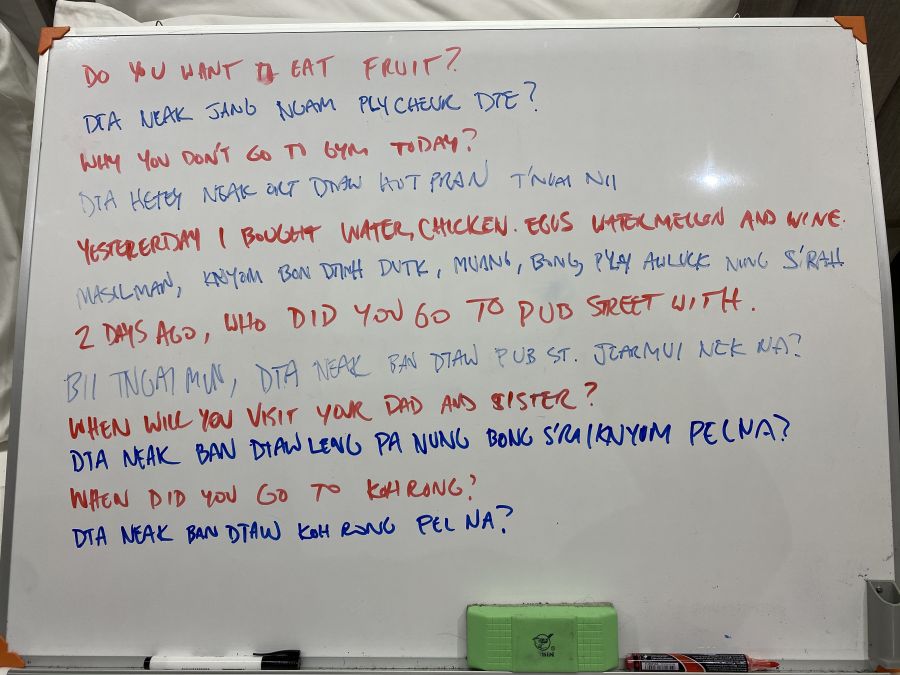 DO YOU WANT EAT FRUIT?
DTA NEAK JANG NGAM PLYCHEUK DTE?
WHY YOU DON'T GO TO GYM TODAY?
DTA HETEY NEAK ORT DTAW HUT PRAN T'NGAI NII
YESTERERDAY I BOUGHT WATER, CHICKEN. EGGS WATERMELLON AND WINE.
MASILMAN, KNYOM BON DTINH DUTK, MUANG, BONG, PLY AWLUCK NUNG S'RAH
2 DAYS AGO, WHO DID YOU GO TO PUB STREET WITH.
BII TNGAI MUN, DTA NEAK BAN DTAW PUB ST. JEARMUI NEK NA?
WHEN WILL YOU VISIT YOUR DAD AND SISTER?
DTA NEAK BAN DTAW LENG PA NUNG BONG S'REI KNYOM PEL NA?
WHEN DID YOU GO TO KOH RONG?
DTA NEAK BAN DTAW KOH RONG PEL NA?